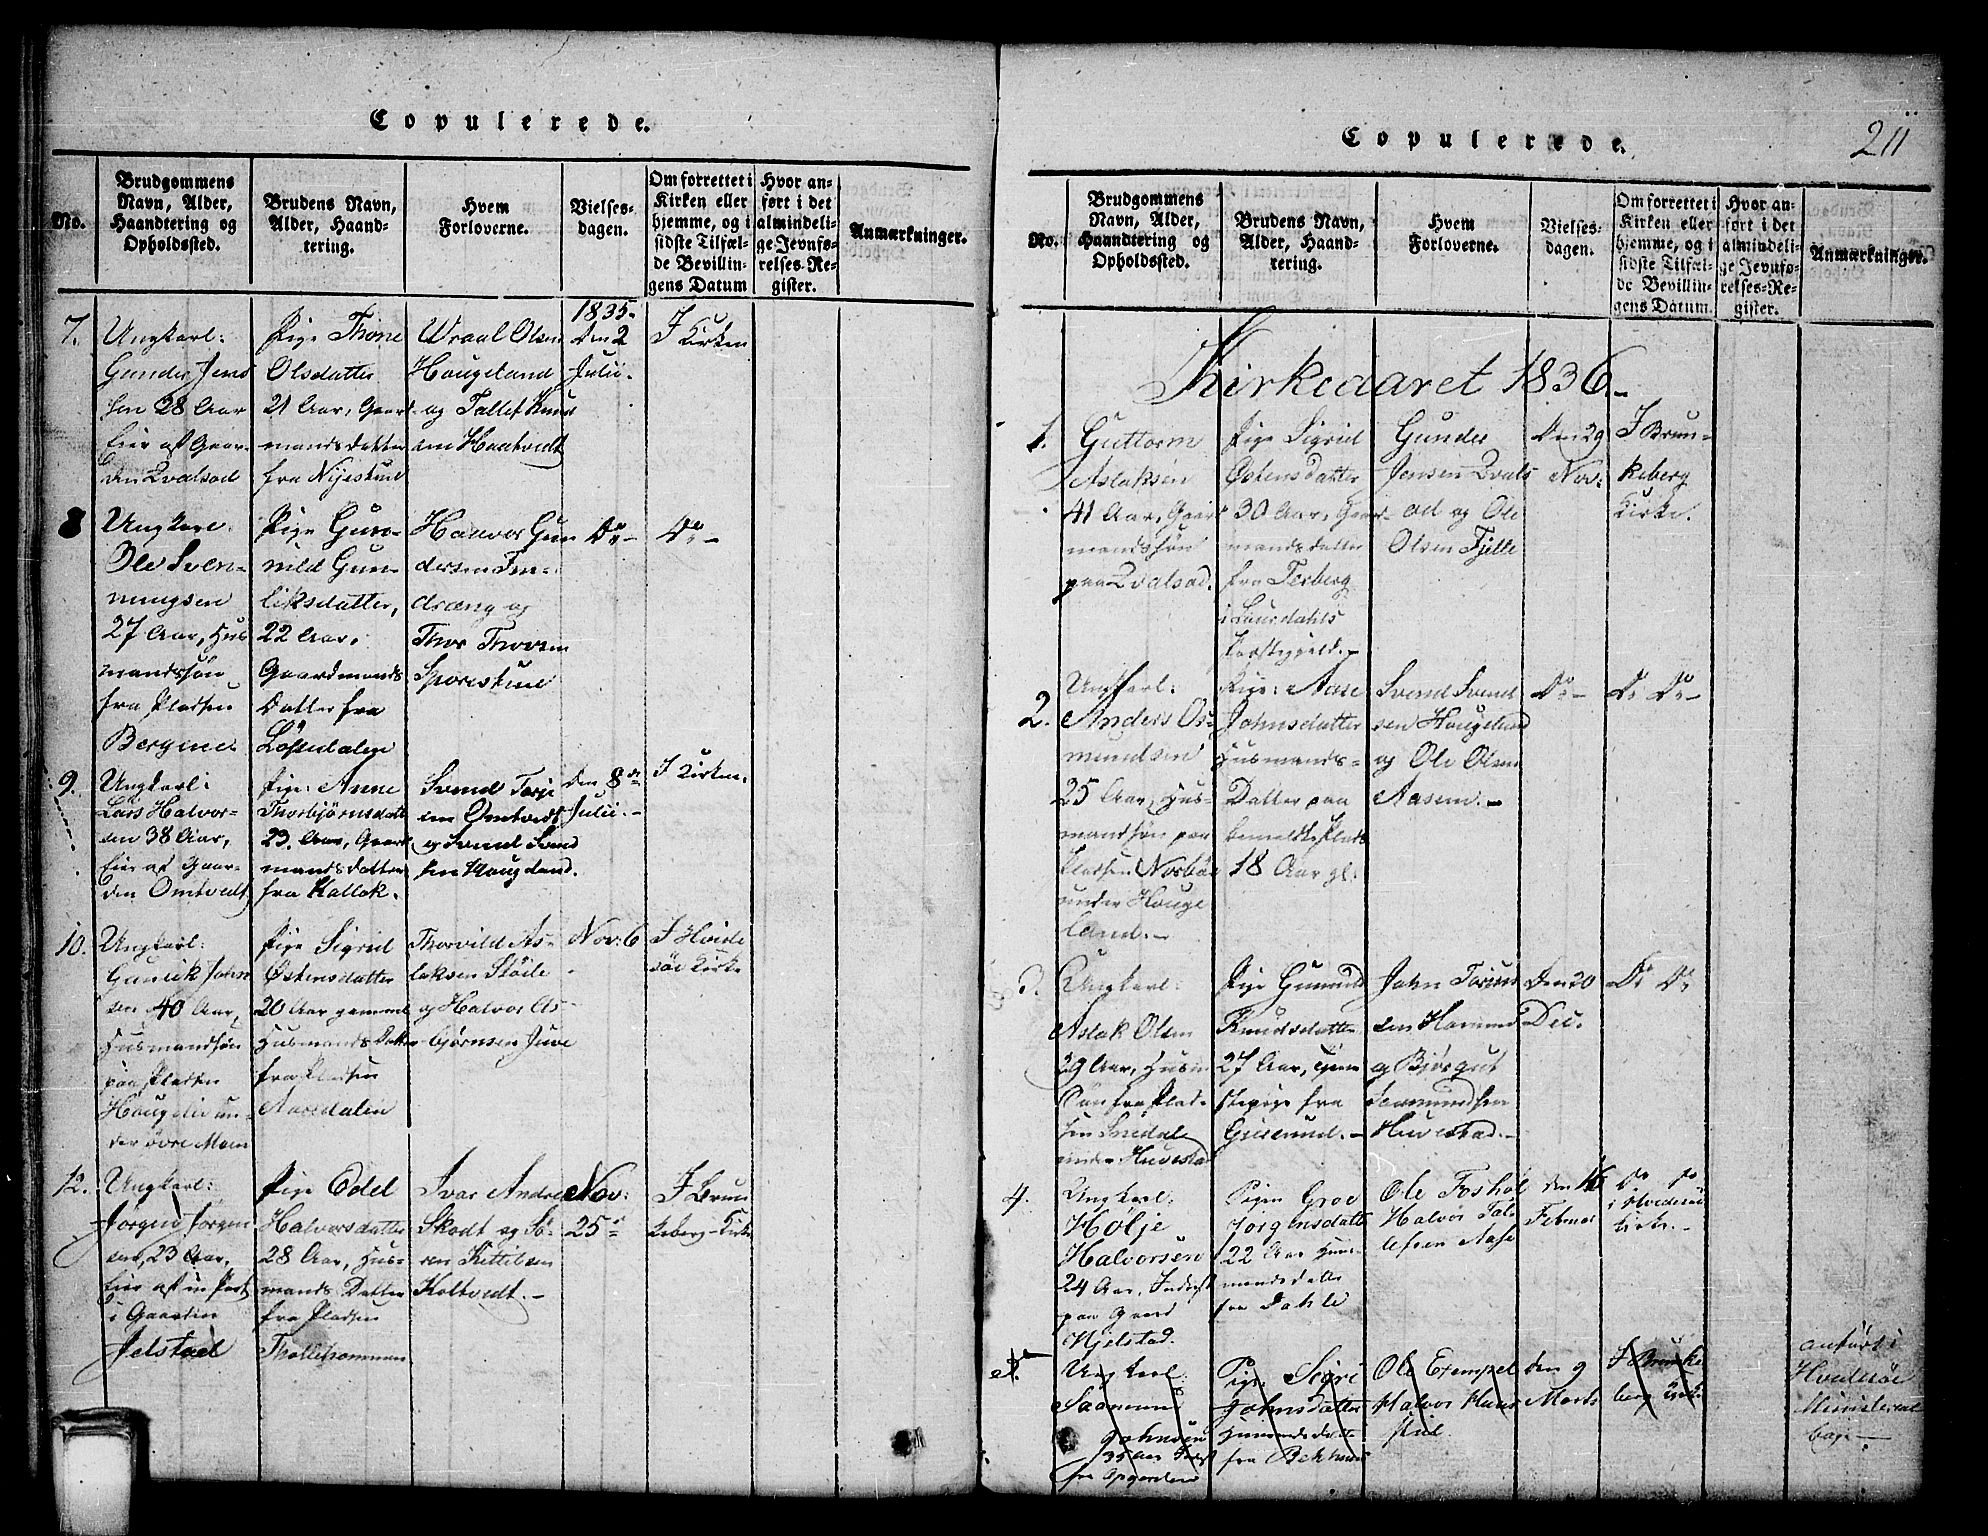 Copulerede.
No.
Brudgommens
Navn, Alder,
Haandtering og
Opholdssted.
Brudens Navn,
Alder, Haand-
tering.
Hvem
Forloverne.
Vielses-
dagen.
Om forrettet i
Kirken eller
hjemme, og i
sidste Tilfæl-
de Bevillin-
gens Datum
Hvor an-
ført i det
almindeli-
ge Jevnfø-
relses-Re-
gister.
Anmærkninger.
7.
Ungkarl:
Gunder Jens
sen 28 Aar
Eier af Gaar-
den Qvalsod
Pige Thone
Olsdatter
21 Aar, Gaard-
mands datter
fra
Wraal Olsen
Hougeland
og Tallef Knud
sen Haatvedt
1835.
den 2
Julii.
I Kirken
8
Ungkarl:
Ole Sven-
nungsen
27 Aar, Huus
mandssøn
fra Pladsen
Bergine
Pige Gun-
nild Gun-
leiksdatter,
22 Aar,
Gaardmands
Datter fra
Løstedalen
Halvor Gun
dersen
og
Thor Thorsen
Do -
Do -
9.
Ungkarl:
Lars Halvor-
sen 38 Aar,
Eier af Gaar-
den Omtvedt
Pige: Anne
Thorbjørnsdatt
23 Aar, Gaard
mands datter
fra Kallak.
Svend Torje
sen Omtvedt
og Svend Svend
sen Hougeland.
den 8de
Julii.-
I Kirken.
10.
Ungkarl:
John
sen 40 Aar,
Husmandssøn
paa Pladsen
Hougelie un-
der øvre Moen
Pige Sigrid
Østensdatter
20 Aar gammel
Husmands Datter
fra Pladsen
Aasedalen
Thorvild As-
laksen Støile
og Halvor As-
bjørnsen Juve
Nov: 6
I Hvide
søe Kirke
12.
Ungkarl:
Jørgen Jørgen
sen, 23 Aar,
Eier af en Part
i Gaarden
Jelstad
Pige Edel
Halvorsdatter
28 Aar, Hus-
mands Datter
fra Pladsen
Ivar Andre
Skodt og Sø-
ren Kittilsen
Holtvedt.-
Nov:
25
I Brun
keberg Kirke
Copulerede.
211
No.
Brudgommens
Navn, Alder,
Haandtering og
Opholdssted.
Brudens Navn,
Alder, Haand-
tering.
Hvem
Forloverne.
Vielses-
dagen.
Om forrettet i
Kirken eller
hjemme, og i
sidste Tilfæl-
de Bevillin-
gens Datum.
Hvor an-
ført i det
almindeli-
ge Jevnfø-
relses-Re-
gister.
Anmærkninger.
Kirkeaaret 1836.-
1.
Guttorm
Aslaksen
41 Aar, Gaard
mandssøn
paa Qvalsod.
Pige Sigrid
Østensdatter
30 Aar, Gaard-
mands datter
fra Terberg
i Laurdahls
Præstegjeld.-
Gunder
Jensen Qvals
od og Ole
Olsen Fjelle
Den 29
Nov:
I Brun-
keberg
Kirke.
2.
Ungkarl:
Anders Os-
mundsen
25 Aar, Hus-
mandssøn paa
Pladsen Norbøe
under Houge
land.-
Pige: Aase
Johnsdatter
Husmands-
Datter paa
bemeldte Plads
18 Aar gl:
Svend Svend
sen Hougeland
og Ole Olsen
Aasen.-
Do -
Do Do -
3.
Ungkarl:
Aslak Olsen
29 Aar, Husm
Søn fra Plad-
sen
under Huvestad
Pige Gunnild
Knudsdatter
27 Aar, tjene
stepige fra
John
sen
og
Huvestad.-
Den 20
Dec.
Do Do
4.
Ungkarl:
Hølje
Halvorsen
24 Aar, Inderst
paa Gaard
Hjelstad.
Pigen Groe
Jørgensdatt
22 Aar Huus
mands datter
fra Dahle
Ole Foshol
Halvor Tal-
lefsen Aase
den 16
Februar
Do Do
i Hvidesøe
Kirke.-
Ungkarl:
Saamund
Johnsen
35 Aar Inderst
fra Opgarden
Pige Sigri
Johnsdatter
Huusmands datter
fra
Ole Exempel
Halvor Haus
den 9
Marts
I Brunke
berg Kirke
anført i
Hvidesøe
Ministerial
bog.-